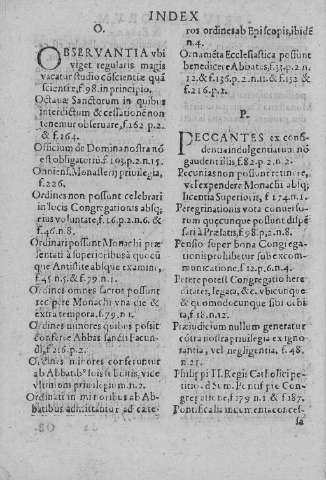 INDEX
O.
OBSERVANTIA vbi
viget regularis magis
vacatur studio cōscientiæ quā
scientiæ, f 98. in principio.
Octauæ Sanctorum in quibus
interdictum & cessationē non
tenemur obseruare, f 162 p.2.
& f.164.
Officium de Domina nostra nō
est obligatoriū, f 103. p.2.n.15.
Monasterij priuilegia,
f.226.
Ordines non possunt celebrari
in locis Congregationis absq;
eius voluntate, f.16. p.2.n.6. &
f.46.n.8.
Ordinari possunt Monachi præ
sentati à superioribus à quocū
que Antistite absque examine,
f.45 n.5. & f.79 n.1.
Ordines omnes sacros possunt
recipere Monachi vna die &
extra tempora, f.79. n.1.
Ordines minores quibus possit
conferre Abbas sancti Facun
di, f 216. p.2.
Ordines minores conferuntur
ab Abbatibus suis subditis, viuæ
vltimum priuilegium n.2.
Ordinati in minoribus ab Ab-
batibus admittātur ad cæte-
ros ordines ab Episcopis, ibidē
n.4.
Ornamēta Ecclesiastica possunt
benedicere Abbates, f.134. p.2.n.
12. & f.136. p.2.n.11. & f.152 &
f.216. p.2.
P.
PECCANTES ex confi-
dentia indulgentiarum nō
gaudent illis, f.82. p.2. n.2.
Pecunias non possunt retinere,
vel expendere Monachi absq;
licentia Superioris, f 174. n.1.
Peregrinationis vota conuerso-
rum quecunque possunt dispē-
sari à Prælatis, f.98. p.2.n.8.
Pensio super bona Congrega-
tionis prohibetur sub excom-
municatione, f 12. p.6.n.4.
Petere potest Congregatio here-
ditates, legata, &c. vbicunque
& quomodocunque sibi obti-
ta, f 18. n.12.
Præiudicium nullum generatur
cōtra nostra priuilegia ex igno-
rantia, vel negligentia, f. 48.
n 21.
Philippi II. Regis Catholici pe-
titio ad Sum. Pontif. pro Con-
gregatione, f 179 n 1 & f 187.
Pontificalia in cumenta conces-
sa